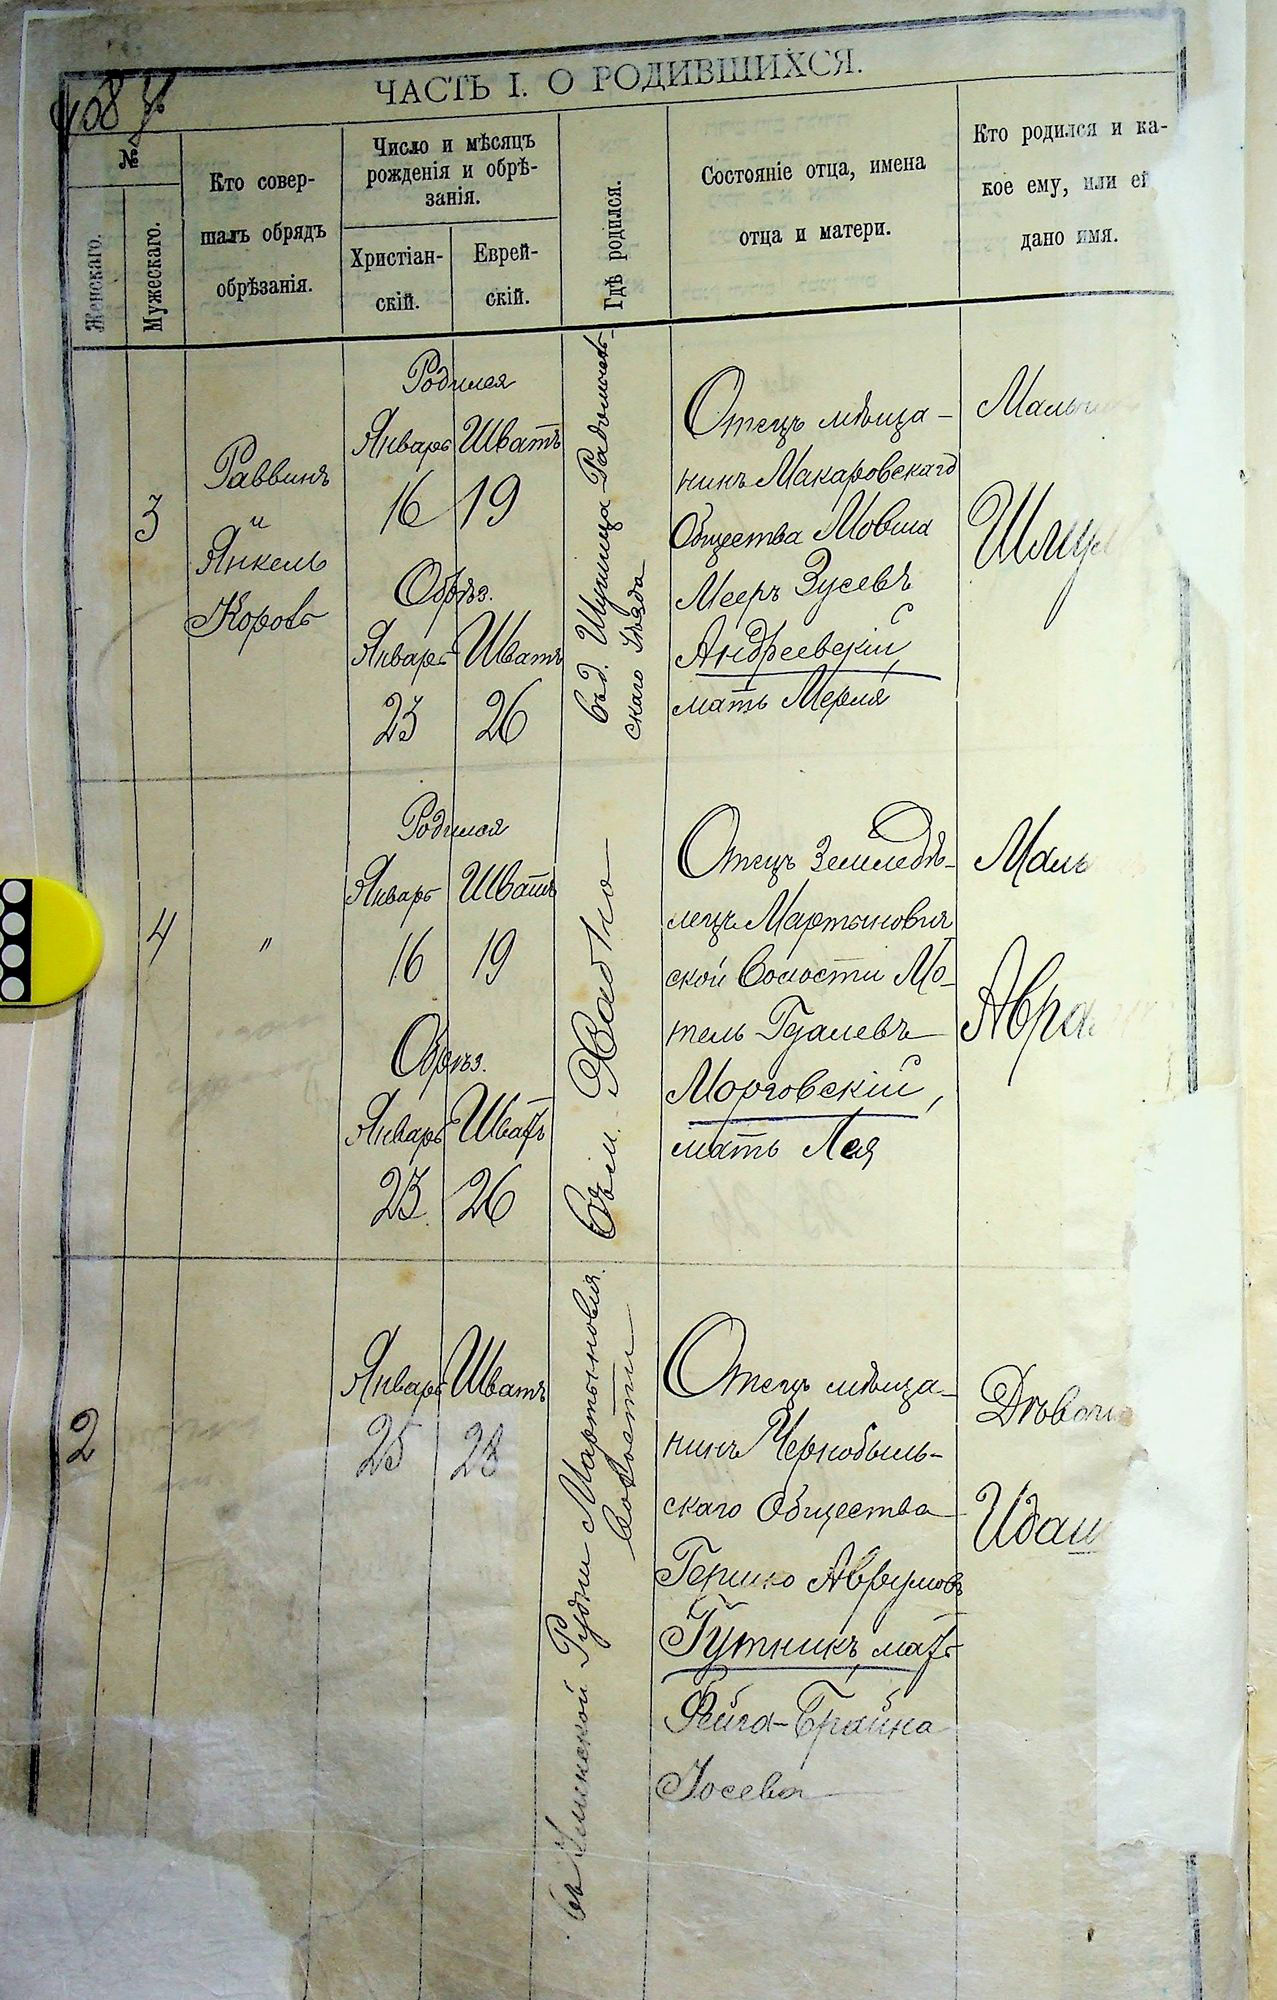 ЧАСТЬ I. О РОДИВШИХСЯ.
№
Женскаго.
Мужескаго.
Кто совер-
шалъ обрядъ
обрѣзанія.
Число и мѣсяцъ
рожденія и обрѣ-
занія.
Христіан-
скій.
Еврей-
скій.
Гдѣ родился.
Состояніе отца, имена
отца и матери.
Кто родился и ка-
кое ему, или ей
дано имя.
3
Раввинъ
и
Янкель
Коровъ
Родился
Январь Шватъ
16 19
Обрѣз.
Январь Шватъ
23 26
въ д. Шушица Радомысль-
скаго Уѣзда
Отецъ мѣща-
нинъ Макаровскаго
Общества Мовша
Мееръ Зусевъ
Андреевскій,
мать Мерля
4
"
Родился
Январь Шватъ
16 19
Обрѣз.
Январь Шватъ
23 26
Въ м. Хабно
Отецъ Земледѣ-
лецъ Мартынович
ской Волости Мо-
тель Гдалевъ
Морговскій,
мать Лея
2
Январь Шватъ
25 28
Рудни Мартынович.
Волости
Отецъ мѣща-
нинъ Чернобыль-
скаго Общества
Гершко Аврумовъ
Гутникъ, мать
Фейга-Брайна
Іосева